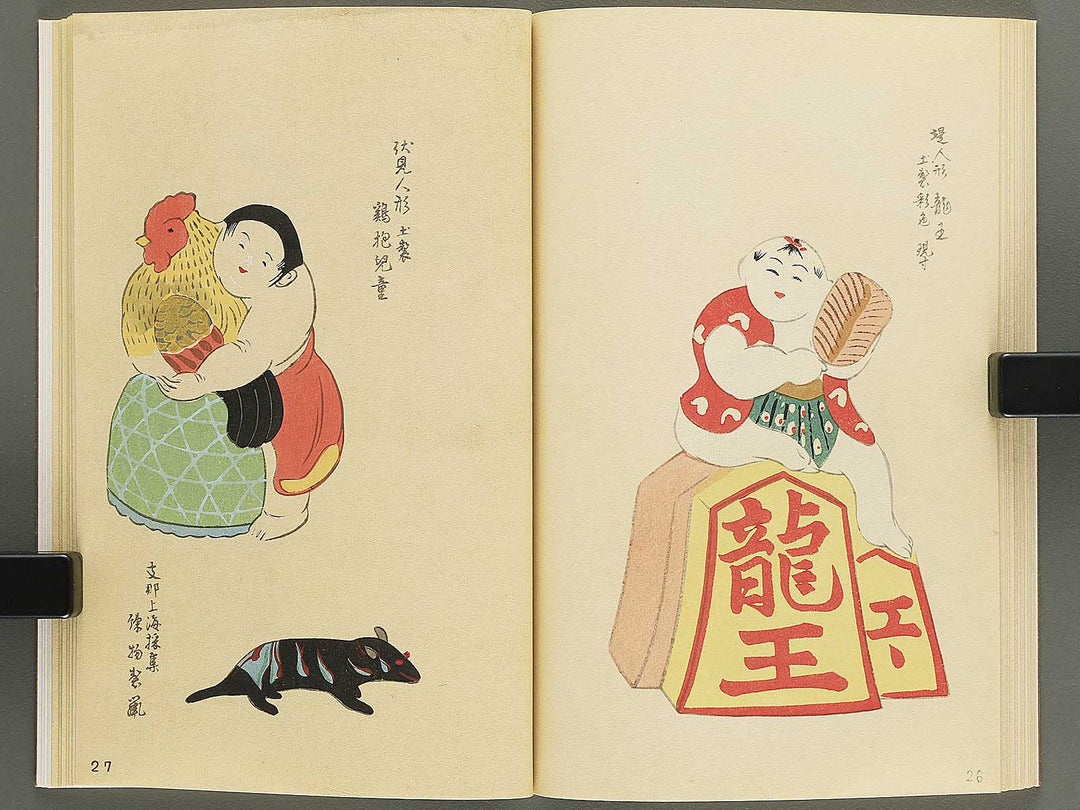 堤人形 龍王
土製彩色 現寸
龍王
王
26
伏見人形 土製
鶏抱児童
支那上海採集
練物製鼠
27